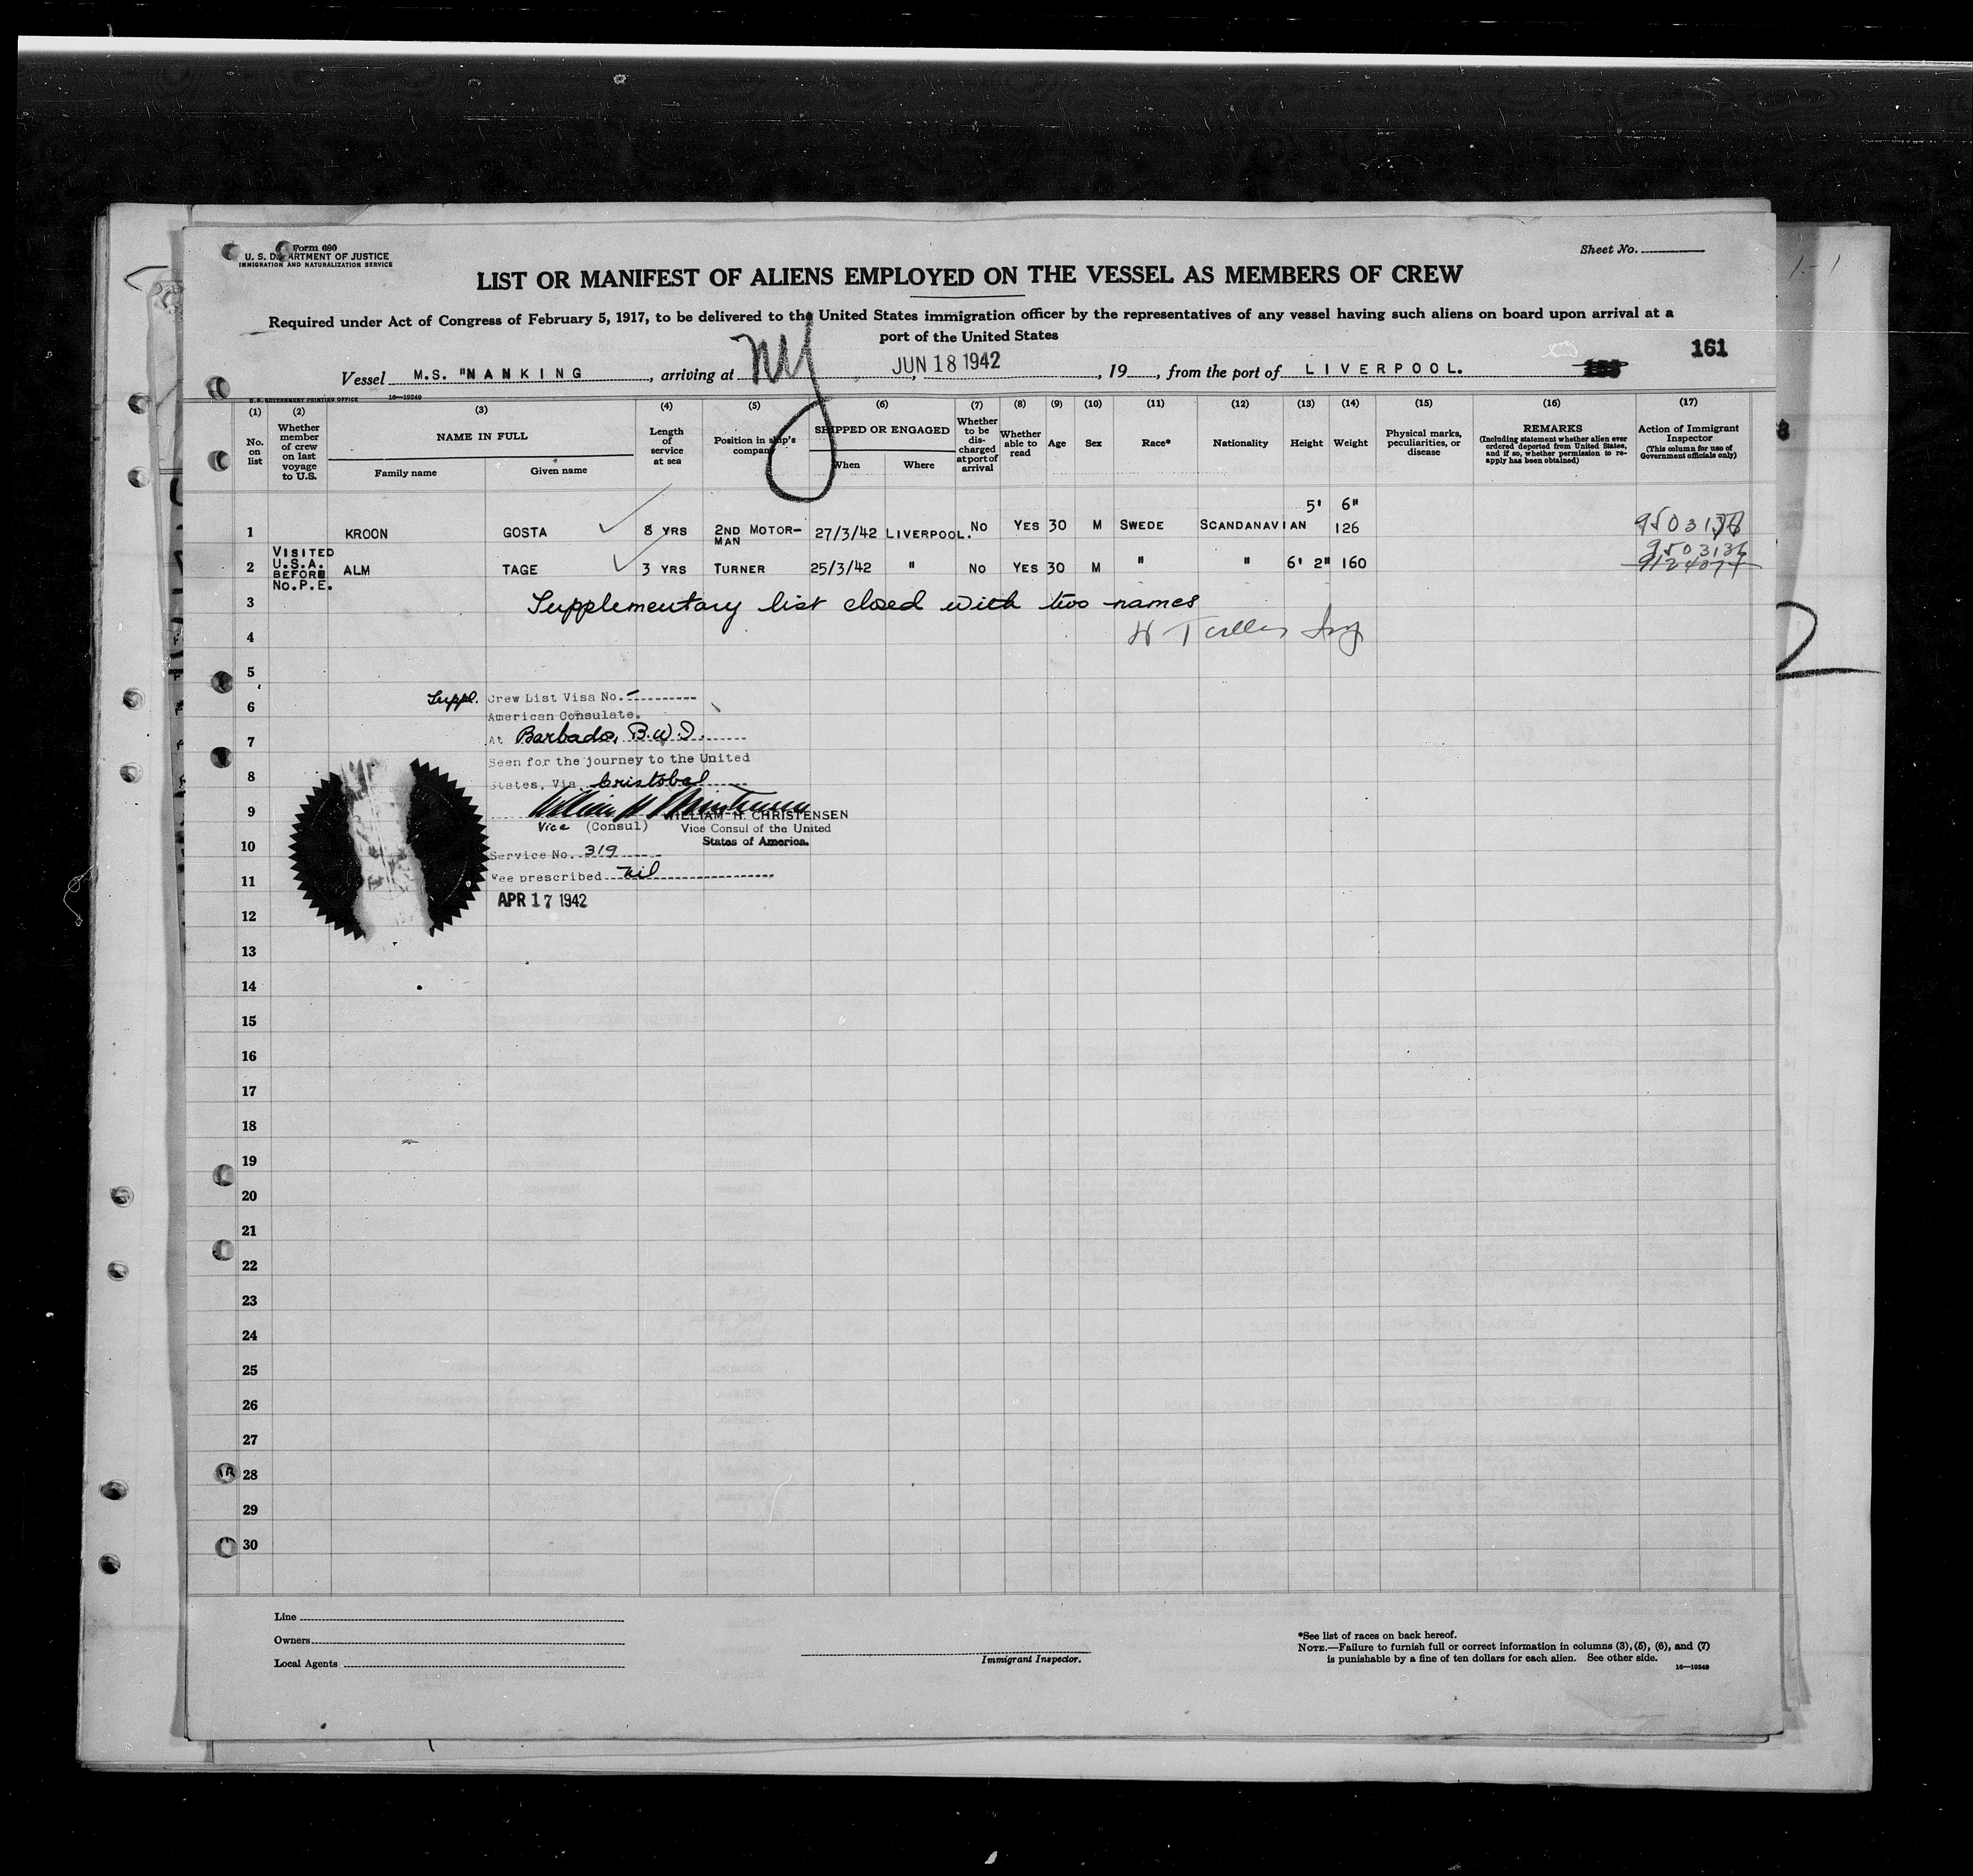 Form 680
U. S. DEPARTMENT OF JUSTICE
IMMIGRATION AND NATURALIZATION SERVICE
Sheet No.
LIST OR MANIFEST OF ALIENS EMPLOYED ON THE VESSEL AS MEMBERS OF CREW
Required under Act of Congress of February 5, 1917, to be delivered to the United States immigration officer by the representatives of any vessel having such aliens on board upon arrival at a
port of the United States
161
Vessel M.S. "NANKING, arriving at NY, JUN 18 1942, 19, from the port of LIVERPOOL.
U.S. GOVERNMENT PRINTING OFFICE 16—19349
(1) (2) (3) (4) (5) (6) (7) (8) (9) (10) (11) (12) (13) (14) (15) (16) (17)
No. on list
Whether member of crew on last voyage to U.S.
NAME IN FULL
Family name Given name
Length of service at sea
Position in ship's company
SHIPPED OR ENGAGED
When Where
Whether to be discharged at port of arrival
Whether able to read
Age Sex Race* Nationality Height Weight
Physical marks, peculiarities, or disease
REMARKS
(Including statement whether alien ever ordered deported from United States, and if so, whether permission to reapply has been obtained)
Action of Immigrant Inspector
(This column for use of Government officials only)
5' 6"
1 KROON GOSTA 8 YRS 2ND MOTOR-MAN 27/3/42 LIVERPOOL. NO YES 30 M SWEDE SCANDANAVIAN 126
VISITED U.S.A. BEFORE NO.P.E.
2 ALM TAGE 3 YRS TURNER 25/3/42 " NO YES 30 M " " 6' 2" 160
3 Supplementary list closed with two names
4
5
6 Suppl. Crew List Visa No. -
American Consulate.
7 At Barbados, B.W.I.
Seen for the journey to the United
8 States, Via Cristobal
9 William H Christensen WILLIAM H. CHRISTENSEN
Vice (Consul) Vice Consul of the United
10 States of America.
Service No. 319
11 Fee prescribed nil
APR 17 1942
12
13
14
15
16
17
18
19
20
21
22
23
24
25
26
27
28
29
30
Line
Owners
Local Agents
Immigrant Inspector.
*See list of races on back hereof.
NOTE.—Failure to furnish full or correct information in columns (3), (5), (6), and (7)
is punishable by a fine of ten dollars for each alien. See other side.
16—19349